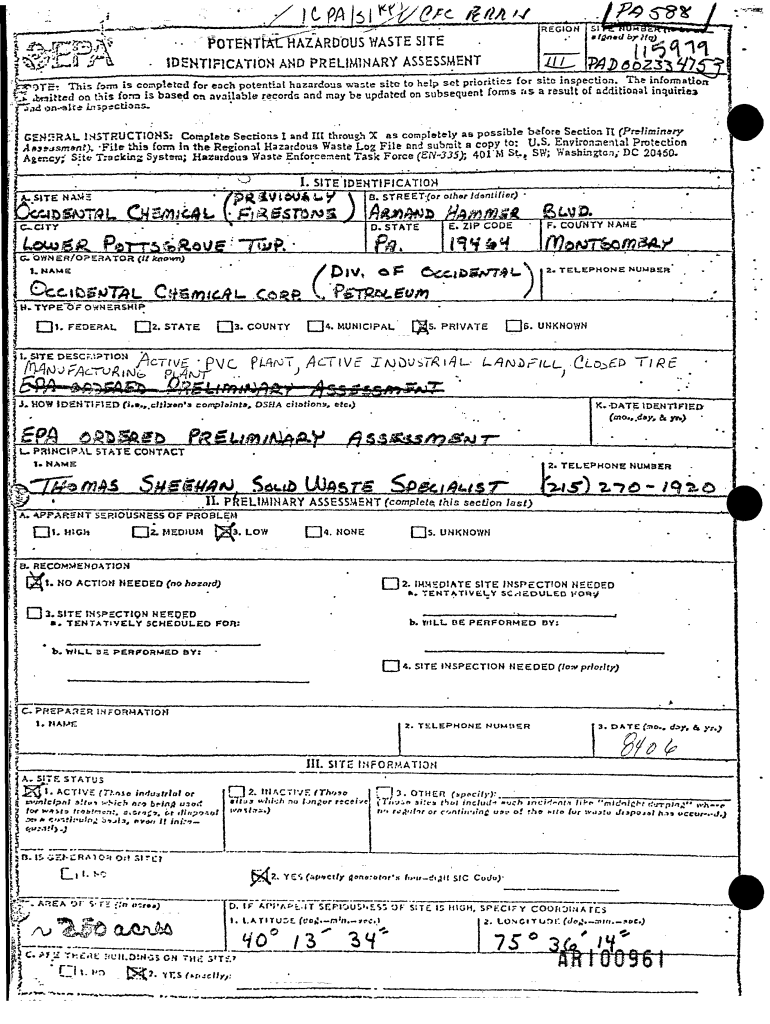 PA588
EPA
POTENTIAL HAZARDOUS WASTE SITE
IDENTIFICATION AND PRELIMINARY ASSESSMENT
REGION
III
SITE NUMBER
signed by Hq)
115979
PAD002334753
NOTE: This form is completed for each potential hazardous waste site to help set priorities for site inspection. The information
submitted on this form is based on available records and may be updated on subsequent forms as a result of additional inquiries
and on-site inspections.
GENERAL INSTRUCTIONS: Complete Sections I and III through X as completely as possible before Section II (Preliminary
Assessment). File this form in the Regional Hazardous Waste Log File and submit a copy to: U.S. Environmental Protection
Agency; Site Tracking System; Hazardous Waste Enforcement Task Force (EN-335); 401 M St., SW; Washington, DC 20460.
I. SITE IDENTIFICATION
A. SITE NAME
OCCIDENTAL CHEMICAL (PREVIOUSLY FIRESTONE)
B. STREET (or other identifier)
ARMAND HAMMER BLVD.
C. CITY
LOWER POTTSGROVE TWP.
D. STATE
PA.
E. ZIP CODE
19464
F. COUNTY NAME
MONTGOMERY
G. OWNER/OPERATOR (if known)
1. NAME
OCCIDENTAL CHEMICAL CORP (DIV. OF OCCIDENTAL PETROLEUM)
2. TELEPHONE NUMBER
H. TYPE OF OWNERSHIP
1. FEDERAL 2. STATE 3. COUNTY 4. MUNICIPAL 5. PRIVATE 6. UNKNOWN
I. SITE DESCRIPTION ACTIVE PVC PLANT, ACTIVE INDUSTRIAL LANDFILL, CLOSED TIRE
MANUFACTURING PLANT
EPA ORDERED PRELIMINARY ASSESSMENT
J. HOW IDENTIFIED (i.e., citizen's complaints, OSHA citations, etc.)
EPA ORDERED PRELIMINARY ASSESSMENT
K. DATE IDENTIFIED
(mo., day, & yr.)
L. PRINCIPAL STATE CONTACT
1. NAME
THOMAS SHEEHAN SOLID WASTE SPECIALIST
2. TELEPHONE NUMBER
(215) 270-1920
II. PRELIMINARY ASSESSMENT (complete this section last)
A. APPARENT SERIOUSNESS OF PROBLEM
1. HIGH 2. MEDIUM 3. LOW 4. NONE 5. UNKNOWN
B. RECOMMENDATION
1. NO ACTION NEEDED (no hazard)
2. IMMEDIATE SITE INSPECTION NEEDED
a. TENTATIVELY SCHEDULED FOR:
3. SITE INSPECTION NEEDED
a. TENTATIVELY SCHEDULED FOR:
b. WILL BE PERFORMED BY:
b. WILL BE PERFORMED BY:
4. SITE INSPECTION NEEDED (low priority)
C. PREPARER INFORMATION
1. NAME
2. TELEPHONE NUMBER
3. DATE (mo., day, & yr.)
8406
III. SITE INFORMATION
A. SITE STATUS
1. ACTIVE (Those industrial or
municipal sites which are being used
for waste treatment, storage, or disposal
on a continuing basis, even if infre-
quently.)
2. INACTIVE (Those
sites which no longer receive
wastes.)
3. OTHER (specify):
(Those sites that include such incidents like "midnight dumping" where
no regular or continuing use of the site for waste disposal has occurred.)
B. IS GENERATOR ON SITE?
1. NO
2. YES (specify generator's four-digit SIC Code):
C. AREA OF SITE (in acres)
~ 250 acres
D. IF APPARENT SERIOUSNESS OF SITE IS HIGH, SPECIFY COORDINATES
1. LATITUDE (deg.-min.-sec.)
40° 13' 34"
2. LONGITUDE (deg.-min.-sec.)
75° 36' 14"
E. ARE THERE BUILDINGS ON THE SITE?
1. NO 2. YES (specify):
AR100961